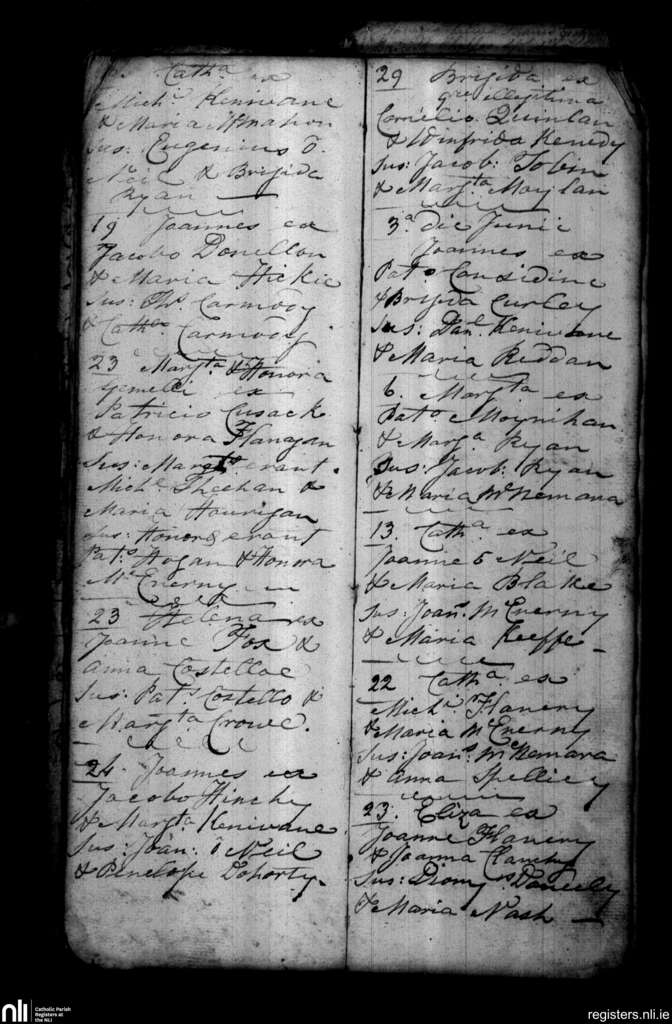 Cath.a ex
Mich.l Kenivane
& Maria McMahon
Sus: Eugenius O.
Neil & Brigida
Ryan
19 Joannes ex
Jacobo Donellon
& Maria Hickie
Sus: Ths. Carmody
& Cath.a Carmody
23 Marg.ta & Honoria
Gemelli ex
Patricio Cusack
& Honora Flanagan
Sus: Marg.ta erant.
Mich.l Sheehan &
Maria Hourigan
Sus: Honora erant
Pat.s Hogan & Honora
Mc Enerny
23 Helena ex
Joanne Fox &
Anna Costelloe
Sus: Pat.s Costello &
Marg.ta Crowe.
24. Joannes ex
Jacobo Hinchy
& Marg.ta Kenivane
Sus: Joan: o Neil
& Penelope Dohorty.
29 Brigida ex
illegitima
Cornelio Quinlan
& Winfrida Kenedy
Sus: Jacob: Tobin
& Marg.ta Moylan
3.a die Junii
Joannes ex
Pat.o Considine
& Brigida Curley
Sus: Dan.l Kenivane
& Maria Reddan
6. Marg.ta ex
Pat.o Moynihan
& Marg.a Ryan
Sus: Jacob: Ryan
& Maria McNemara
13. Cath.a ex
Joanne o Neil
& Maria Blake
Sus: Joan.s McEnerny
& Maria Keeffe
22 Cath.a ex
Mich.l Flanery
& Maria McEnerny
Sus: Joan.s McNemara
& Anna Spelliсy
23. Eliza ex
Joanne Flanery
& Joanna Clanchy
Sus: Diony.s Doneely
& Maria Nash
nli
Catholic Parish
Registers at
the NLI
registers.nli.ie